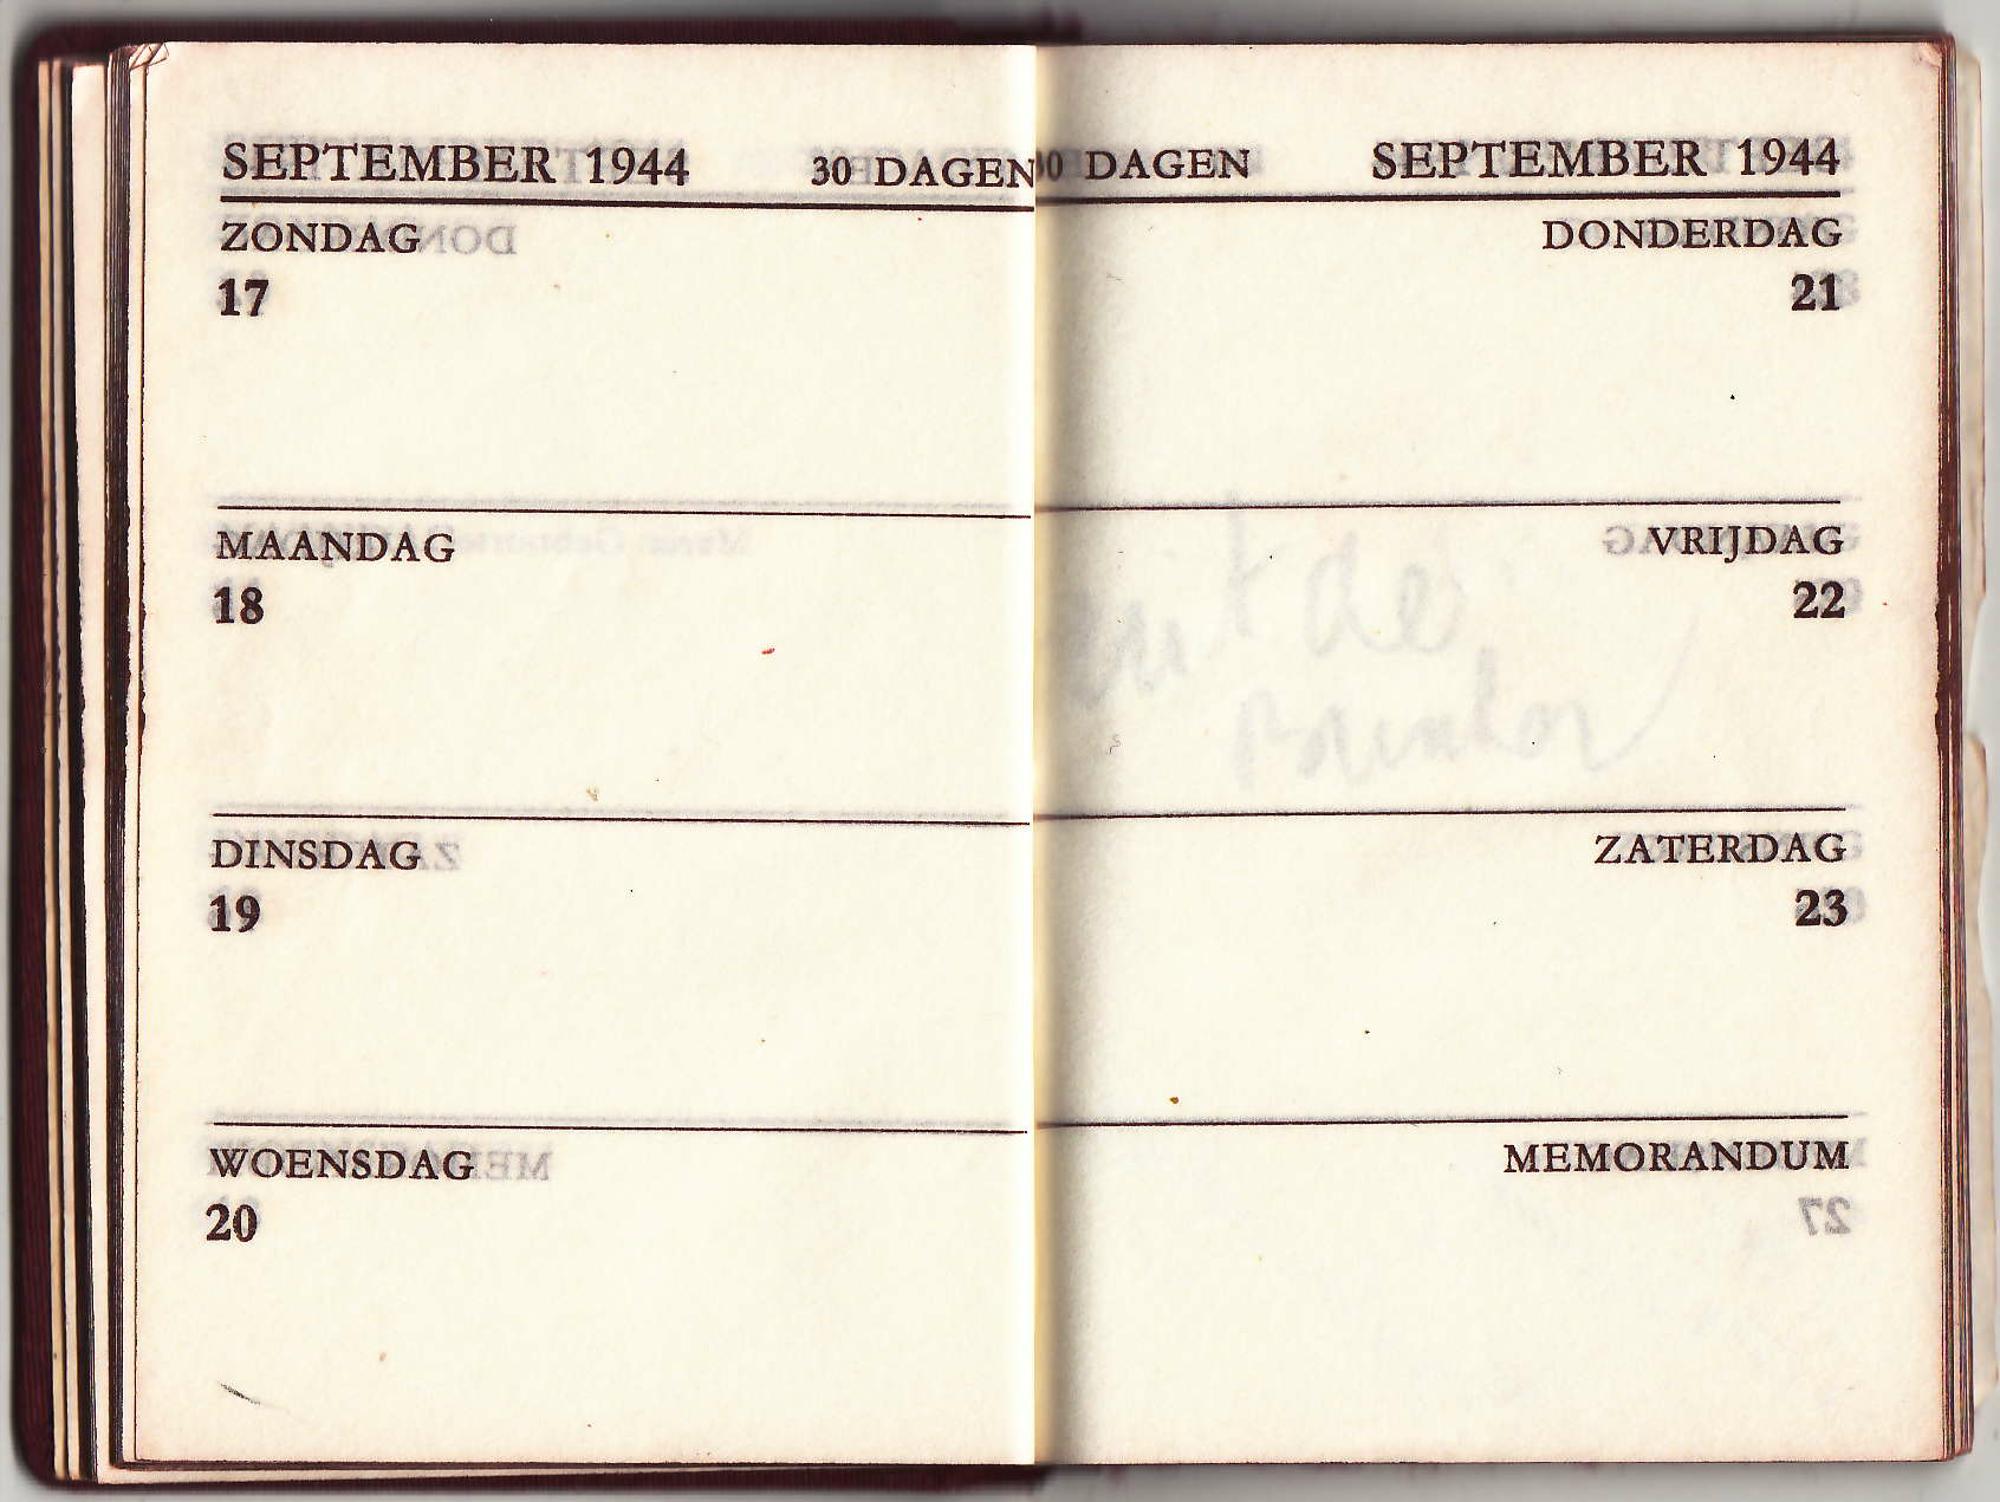 SEPTEMBER 1944 30 DAGEN
ZONDAG
17
MAANDAG
18
DINSDAG
19
WOENSDAG
20
30 DAGEN SEPTEMBER 1944
DONDERDAG
21
VRIJDAG
22
ZATERDAG
23
MEMORANDUM
27